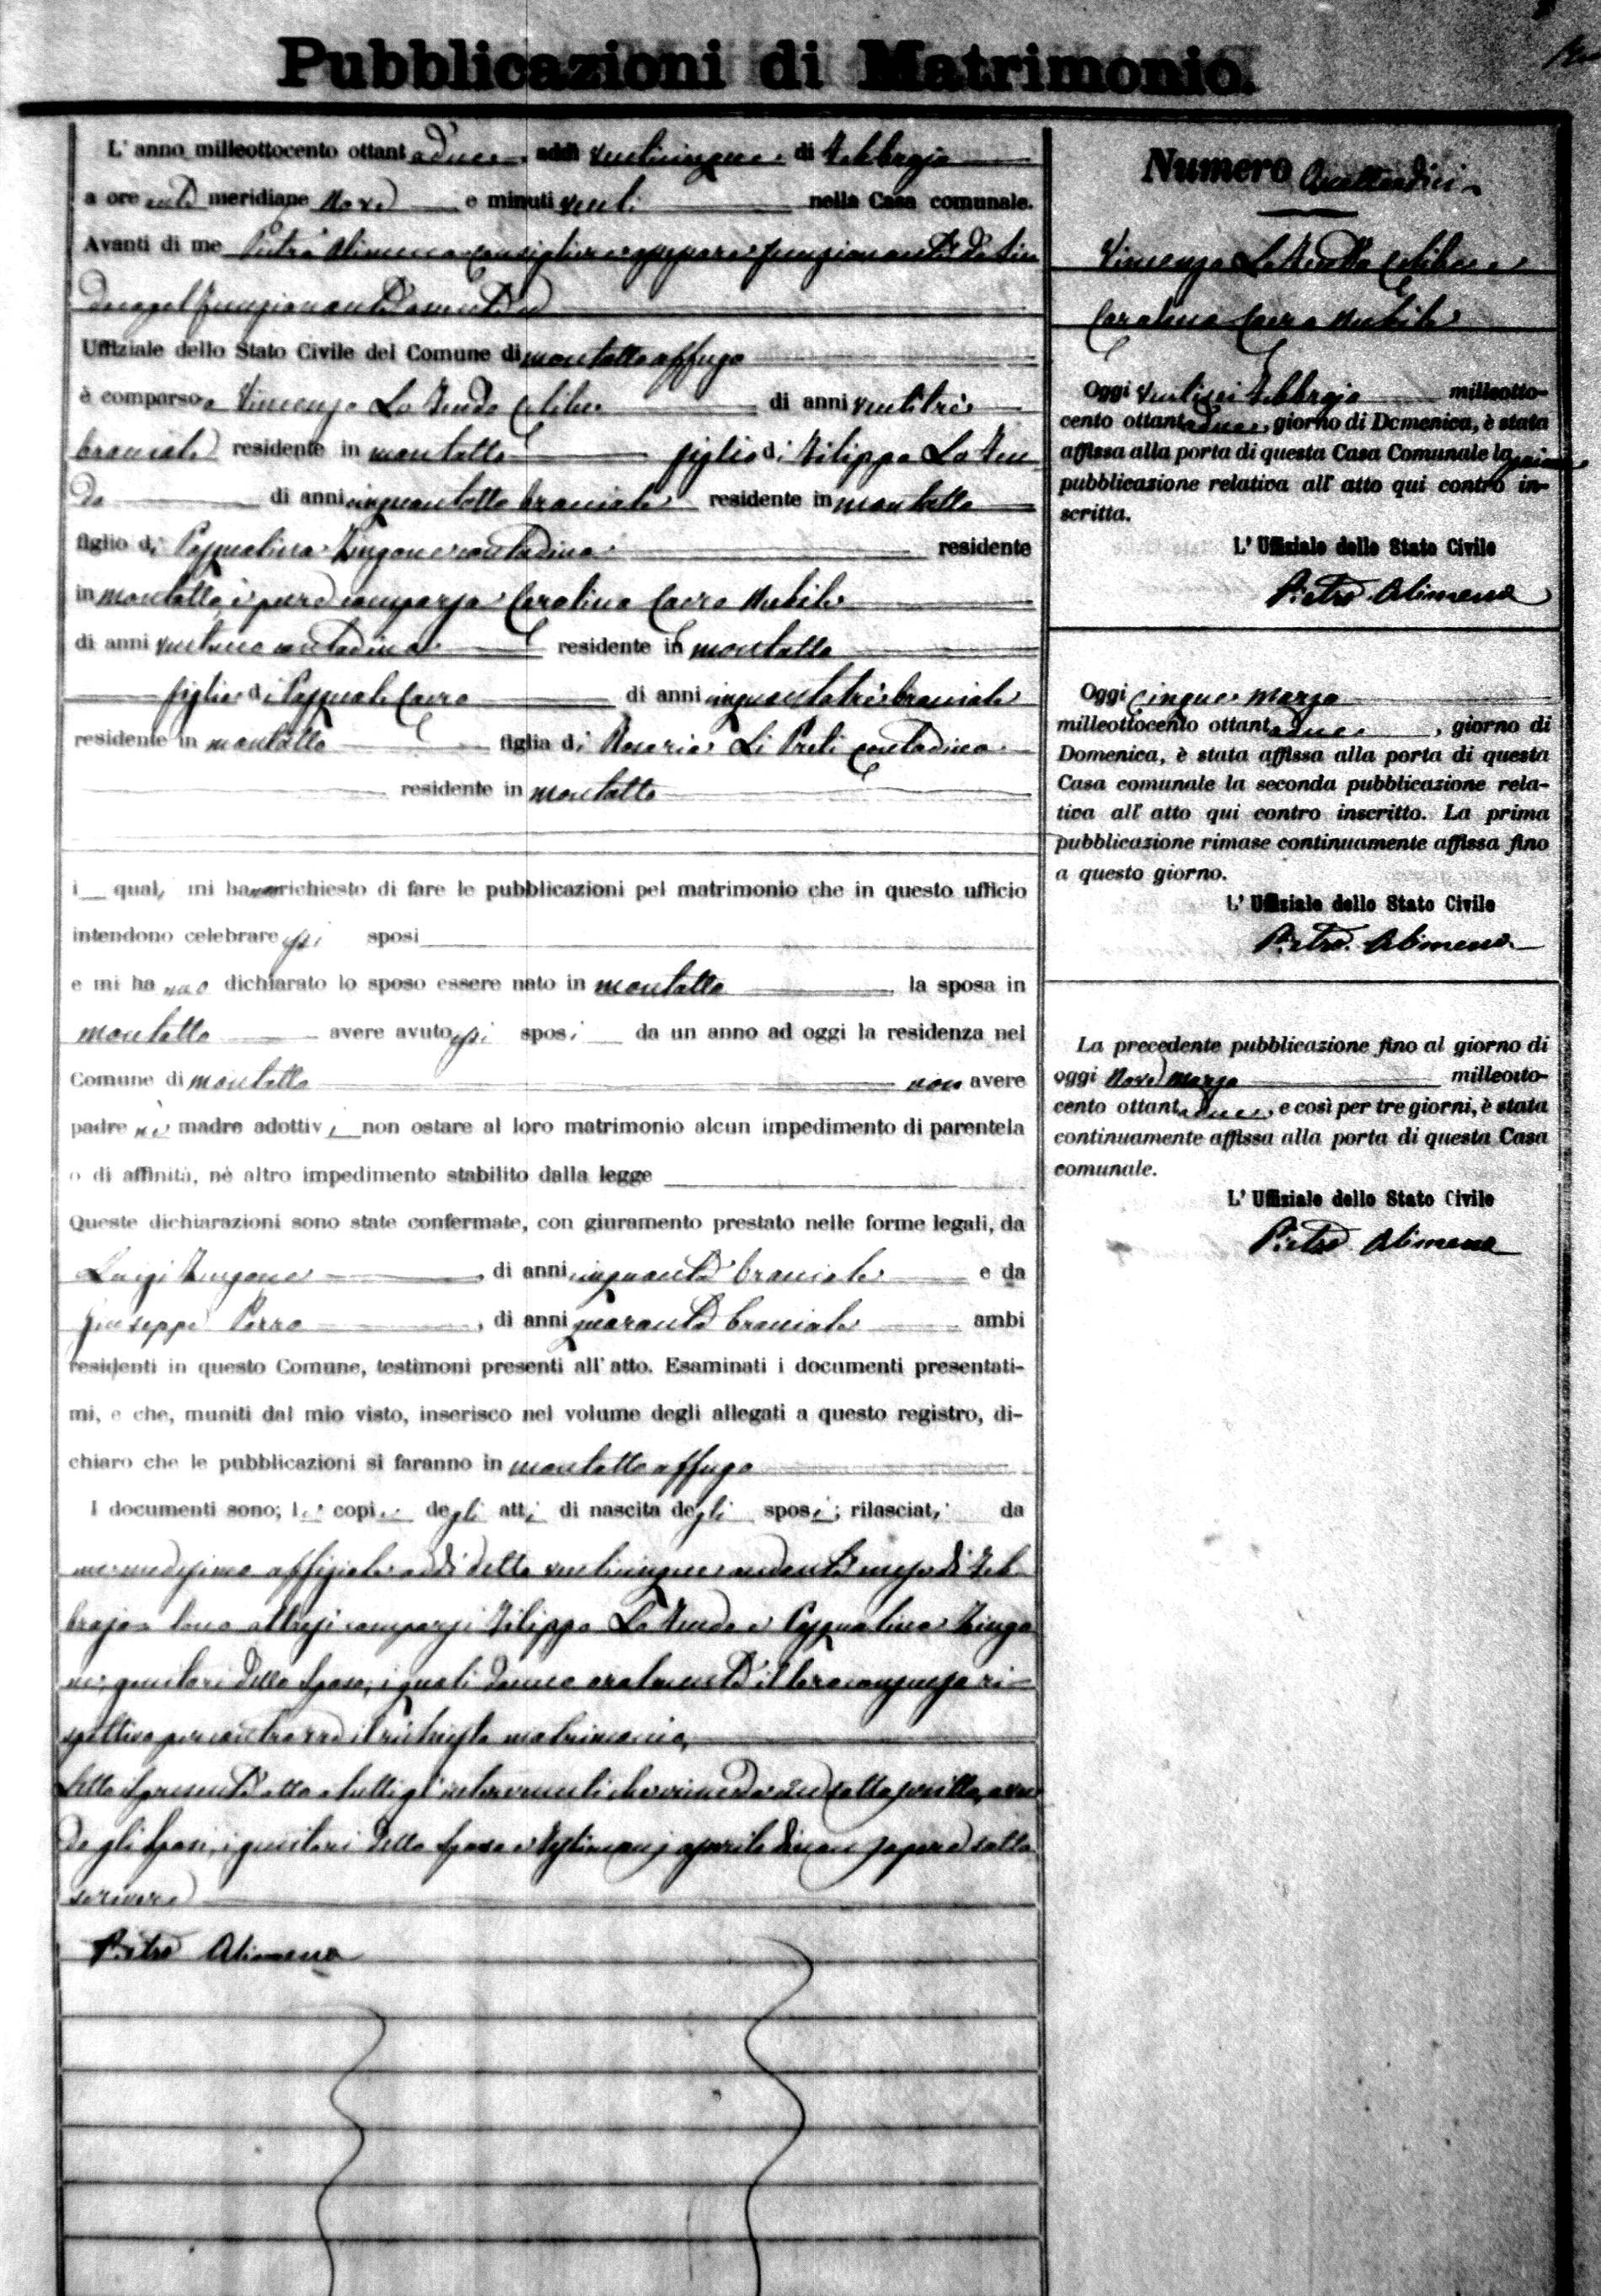 Pubblicazioni di Matrimonio.
L' anno milleottocento ottantadue addì venticinque di Febbrajo
a ore anti meridiane Nove e minuti venti nella Casa comunale.
Avanti di me Pietro Alimena Consigliere funzionante da Sin
daco
Uffiziale dello Stato Civile del Comune di montalto uffugo
è comparso Vincenzo La Tenda Celibe di anni ventitrè
braciale residente in montalto figlio di Filippo La Ten
da di anni cinquantotto braciale residente in montalto
figlio di Pasqualina Zingone contadina residente
in montalto è pure comparsa Carolina Cacra Nubile
di anni contadina residente in montalto
figlia di Pasquale Cacra di anni cinquantatrè braciale
residente in montalto figlia di Rosaria Li Preti contadina
residente in montalto
i quali mi hanno richiesto di fare le pubblicazioni pel matrimonio che in questo ufficio
intendono celebrare essi sposi
e mi hanno dichiarato lo sposo essere nato in montalto la sposa in
montalto avere avuto essi sposi da un anno ad oggi la residenza nel
Comune di montalto non avere
padre nè madre adottivi non ostare al loro matrimonio alcun impedimento di parentela
o di affinità, nè altro impedimento stabilito dalla legge
Queste dichiarazioni sono state confermate, con giuramento prestato nelle forme legali, da
Luigi Zingone di anni cinquanta braciale e da
Giuseppe Perra, di anni quaranta braciale ambi
residenti in questo Comune, testimoni presenti all' atto. Esaminati i documenti presentati-
mi, e che, muniti dal mio visto, inserisco nel volume degli allegati a questo registro, di-
chiaro che le pubblicazioni si faranno in montalto uffugo
I documenti sono; le copie degli atti di nascita degli sposi; rilasciati da
me medesimo uffiziale addì detto venticinque andante mese di Feb
brajo Sono altresì comparsi Filippo La Tenda e Pasqualina Zingo
ne, genitori dello Sposo, i quali danno oralmente il loro consenso ri-
spettivo per contrarre il richiesto matrimonio,
Letto il presente atto a tutti gl' intervenuti sottoscritto
degli Sposi, i genitori dello Sposo e testimonj sapere sotto
scrivere
Pietro Alimena
Numero Quattordici
Vincenzo La Tenda Celibe e
Carolina Cacra Nubile
Oggi ventisei Febbrajo milleotto-
cento ottantadue, giorno di Domenica, è stata
affissa alla porta di questa Casa Comunale la prima
pubblicazione relativa all' atto qui contro in-
scritta.
L' Uffiziale dello Stato Civile
Pietro Alimena
Oggi Cinque Marzo
milleottocento ottantadue, giorno di
Domenica, è stata affissa alla porta di questa
Casa comunale la seconda pubblicazione rela-
tiva all' atto qui contro inscritto. La prima
pubblicazione rimase continuamente affissa fino
a questo giorno.
L' Uffiziale dello Stato Civile
Pietro Alimena
La precedente pubblicazione fino al giorno di
oggi Nove Marzo milleotto-
cento ottantadue, e così per tre giorni, è stata
continuamente affissa alla porta di questa Casa
comunale.
L' Uffiziale dello Stato Civile
Pietro Alimena